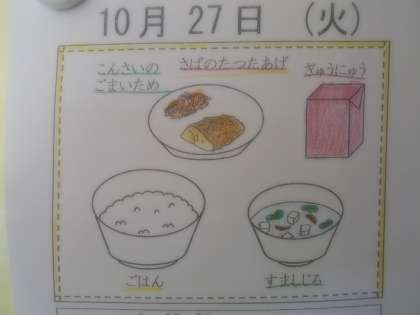 10月 27日 (火)
こんさいの
ごまいため
さばのたつたあげ
ぎゅうにゅう
ごはん
すましじる